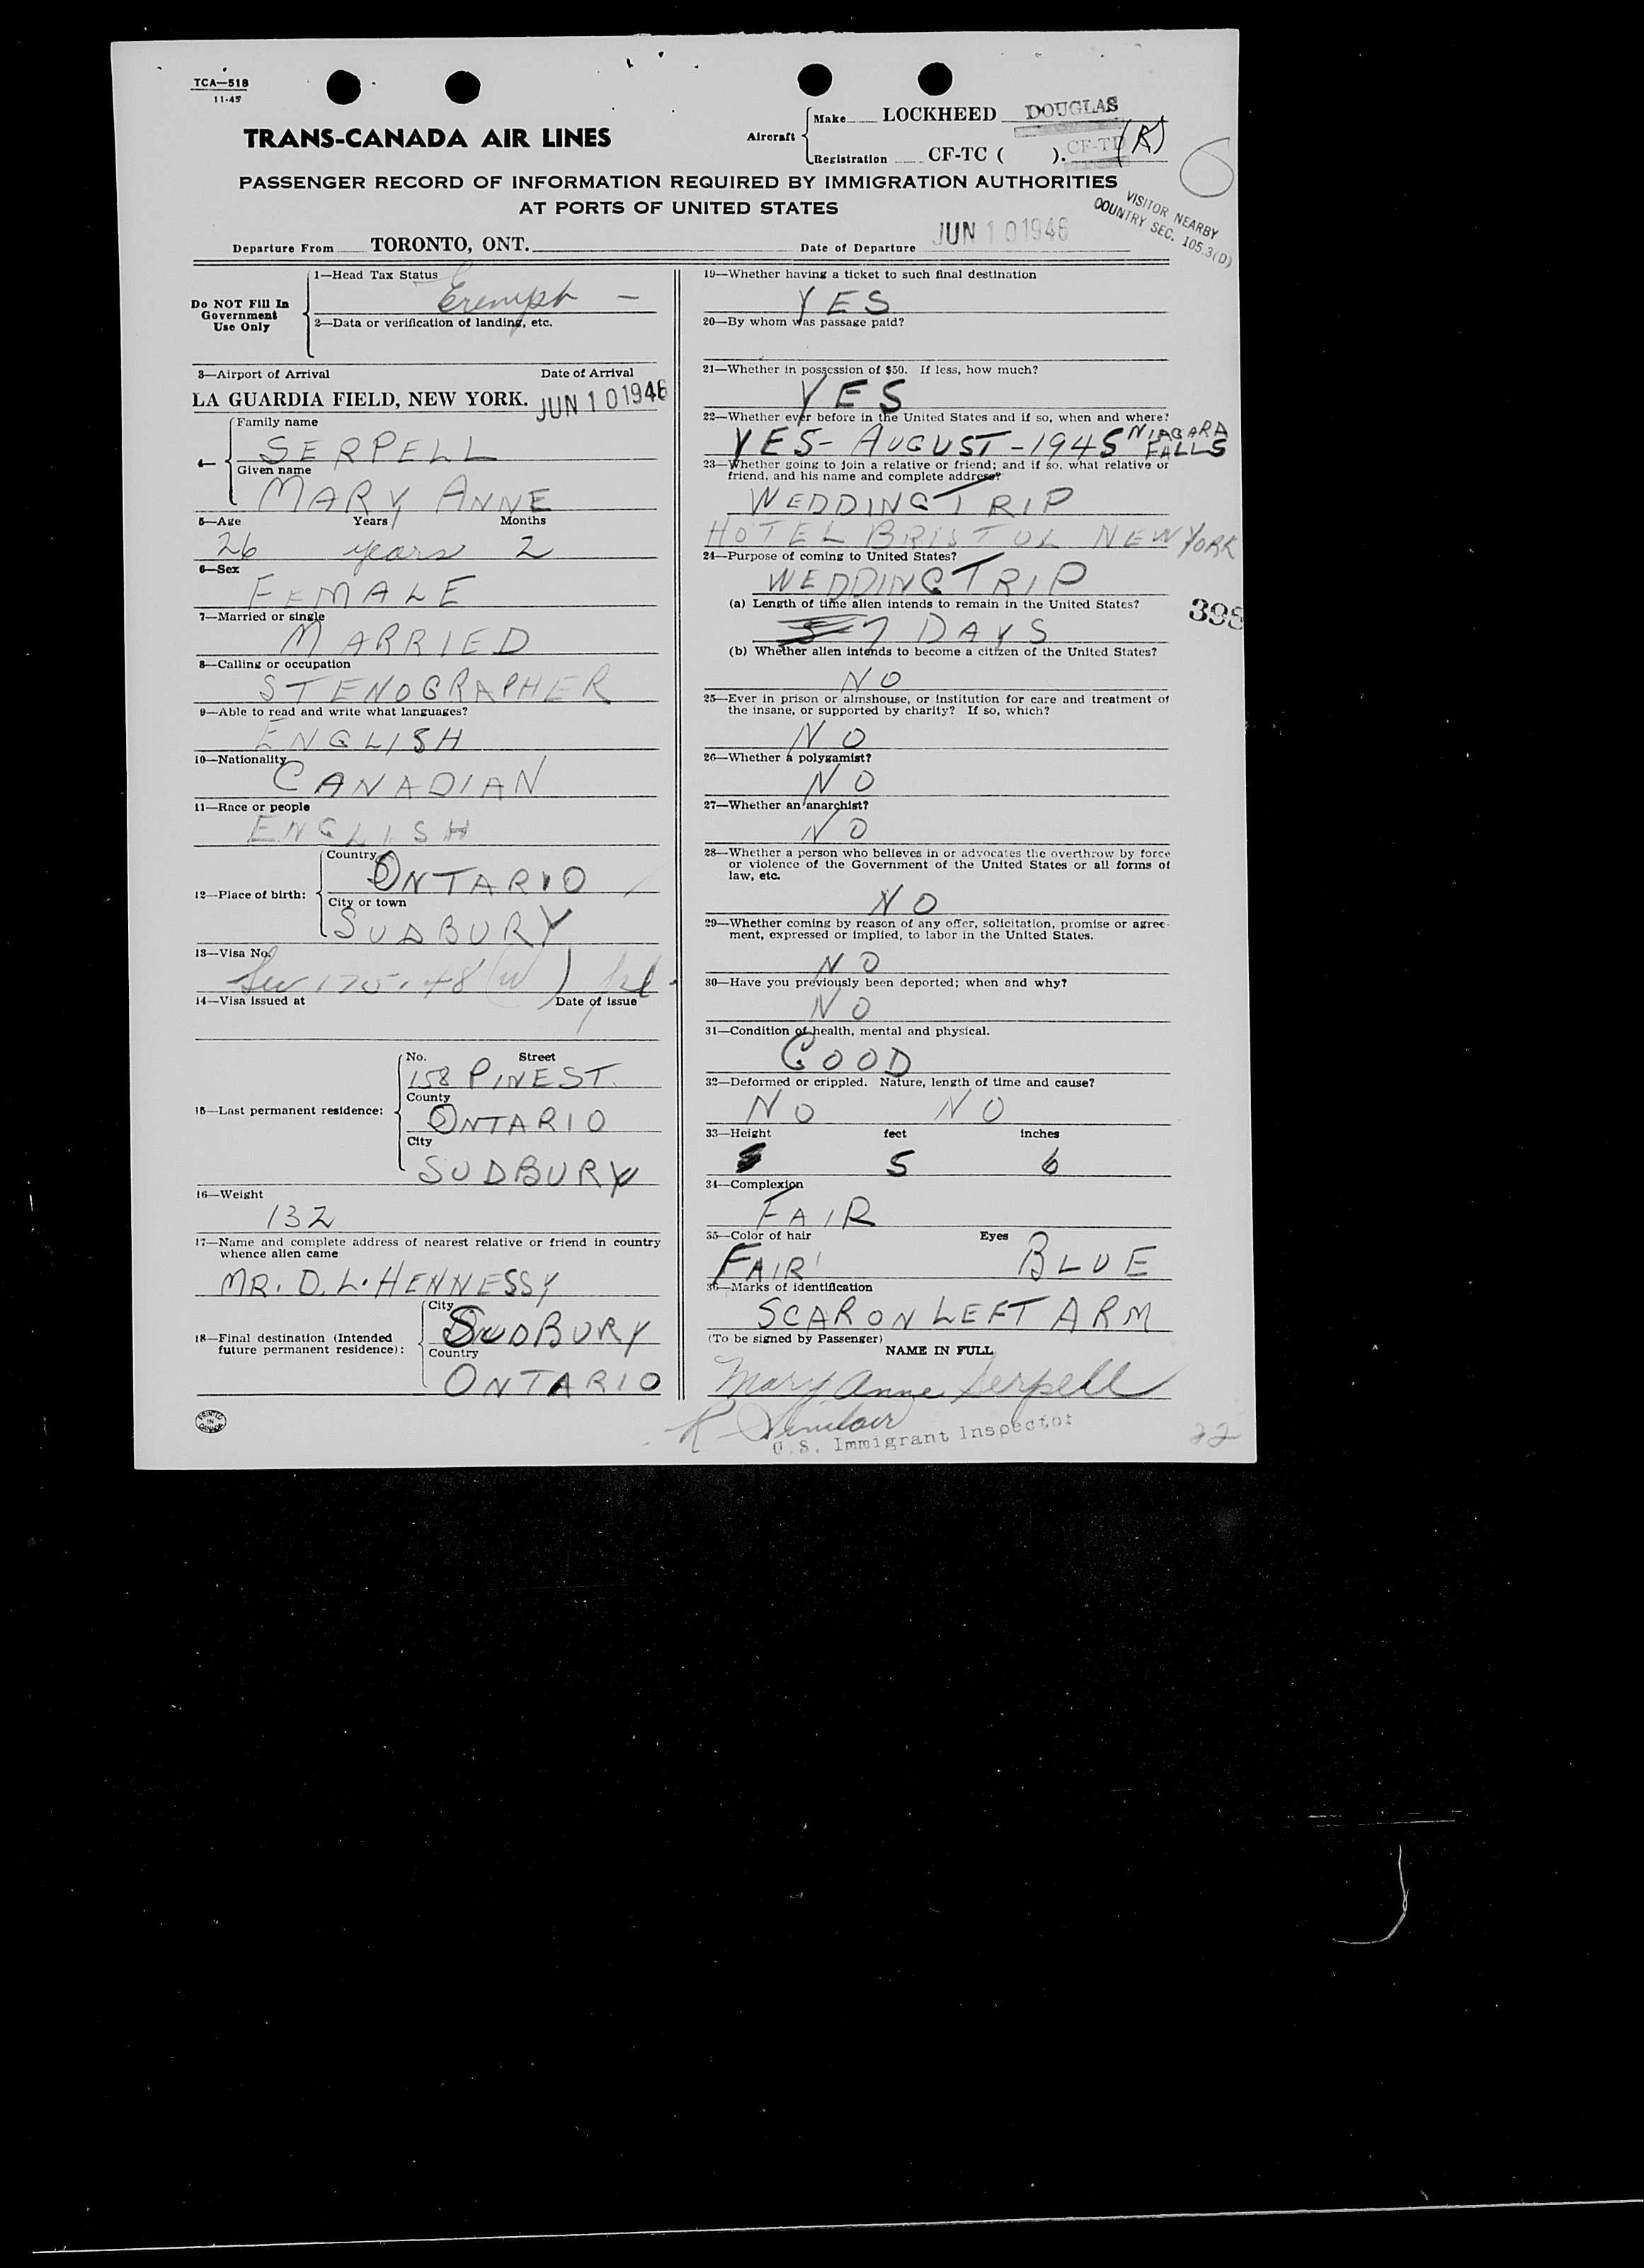 TCA—518
11-45
TRANS-CANADA AIR LINES
Aircraft
Make LOCKHEED DOUGLAS
Registration CF-TC ( ). CF-TD (K)
PASSENGER RECORD OF INFORMATION REQUIRED BY IMMIGRATION AUTHORITIES
AT PORTS OF UNITED STATES
VISITOR NEARBY
COUNTRY SEC. 105.3(D)
Departure From TORONTO, ONT.
Date of Departure JUN 10 1946
Do NOT Fill In
Government
Use Only
1—Head Tax Status
Exempt —
2—Data or verification of landing, etc.
3—Airport of Arrival Date of Arrival
LA GUARDIA FIELD, NEW YORK. JUN 10 1946
4—
Family name
SERPELL
Given name
MARY ANNE
5—Age Years Months
26 years 2
6—Sex
FEMALE
7—Married or single
MARRIED
8—Calling or occupation
STENOGRAPHER
9—Able to read and write what languages?
ENGLISH
10—Nationality
CANADIAN
11—Race or people
ENGLISH
12—Place of birth:
Country
ONTARIO
City or town
SUDBURY
13—Visa No.
175.48
14—Visa issued at Date of issue
15—Last permanent residence:
No. Street
158 PINE ST.
County
ONTARIO
City
SUDBURY
16—Weight
132
17—Name and complete address of nearest relative or friend in country
whence alien came
MR. D. L. HENNESSY
18—Final destination (Intended
future permanent residence):
City
SUDBURY
Country
ONTARIO
PRINTED
IN
CANADA
19—Whether having a ticket to such final destination
YES
20—By whom was passage paid?
21—Whether in possession of $50. If less, how much?
YES
22—Whether ever before in the United States and if so, when and where?
YES - AUGUST - 1945 NIAGARA
FALLS
23—Whether going to join a relative or friend; and if so, what relative or
friend, and his name and complete address?
WEDDING TRIP
HOTEL BRISTOL NEW YORK
24—Purpose of coming to United States?
WEDDING TRIP
(a) Length of time alien intends to remain in the United States?
7 DAYS
398
(b) Whether alien intends to become a citizen of the United States?
NO
25—Ever in prison or almshouse, or institution for care and treatment of
the insane, or supported by charity? If so, which?
NO
26—Whether a polygamist?
NO
27—Whether an anarchist?
NO
28—Whether a person who believes in or advocates the overthrow by force
or violence of the Government of the United States or all forms of
law, etc.
NO
29—Whether coming by reason of any offer, solicitation, promise or agree-
ment, expressed or implied, to labor in the United States.
NO
30—Have you previously been deported; when and why?
NO
31—Condition of health, mental and physical.
GOOD
32—Deformed or crippled. Nature, length of time and cause?
NO NO
33—Height feet inches
5 6
34—Complexion
FAIR
35—Color of hair Eyes
FAIR BLUE
36—Marks of identification
SCAR ON LEFT ARM
(To be signed by Passenger)
NAME IN FULL
Mary Anne Serpell
R Sinclair
U.S. Immigrant Inspector
22